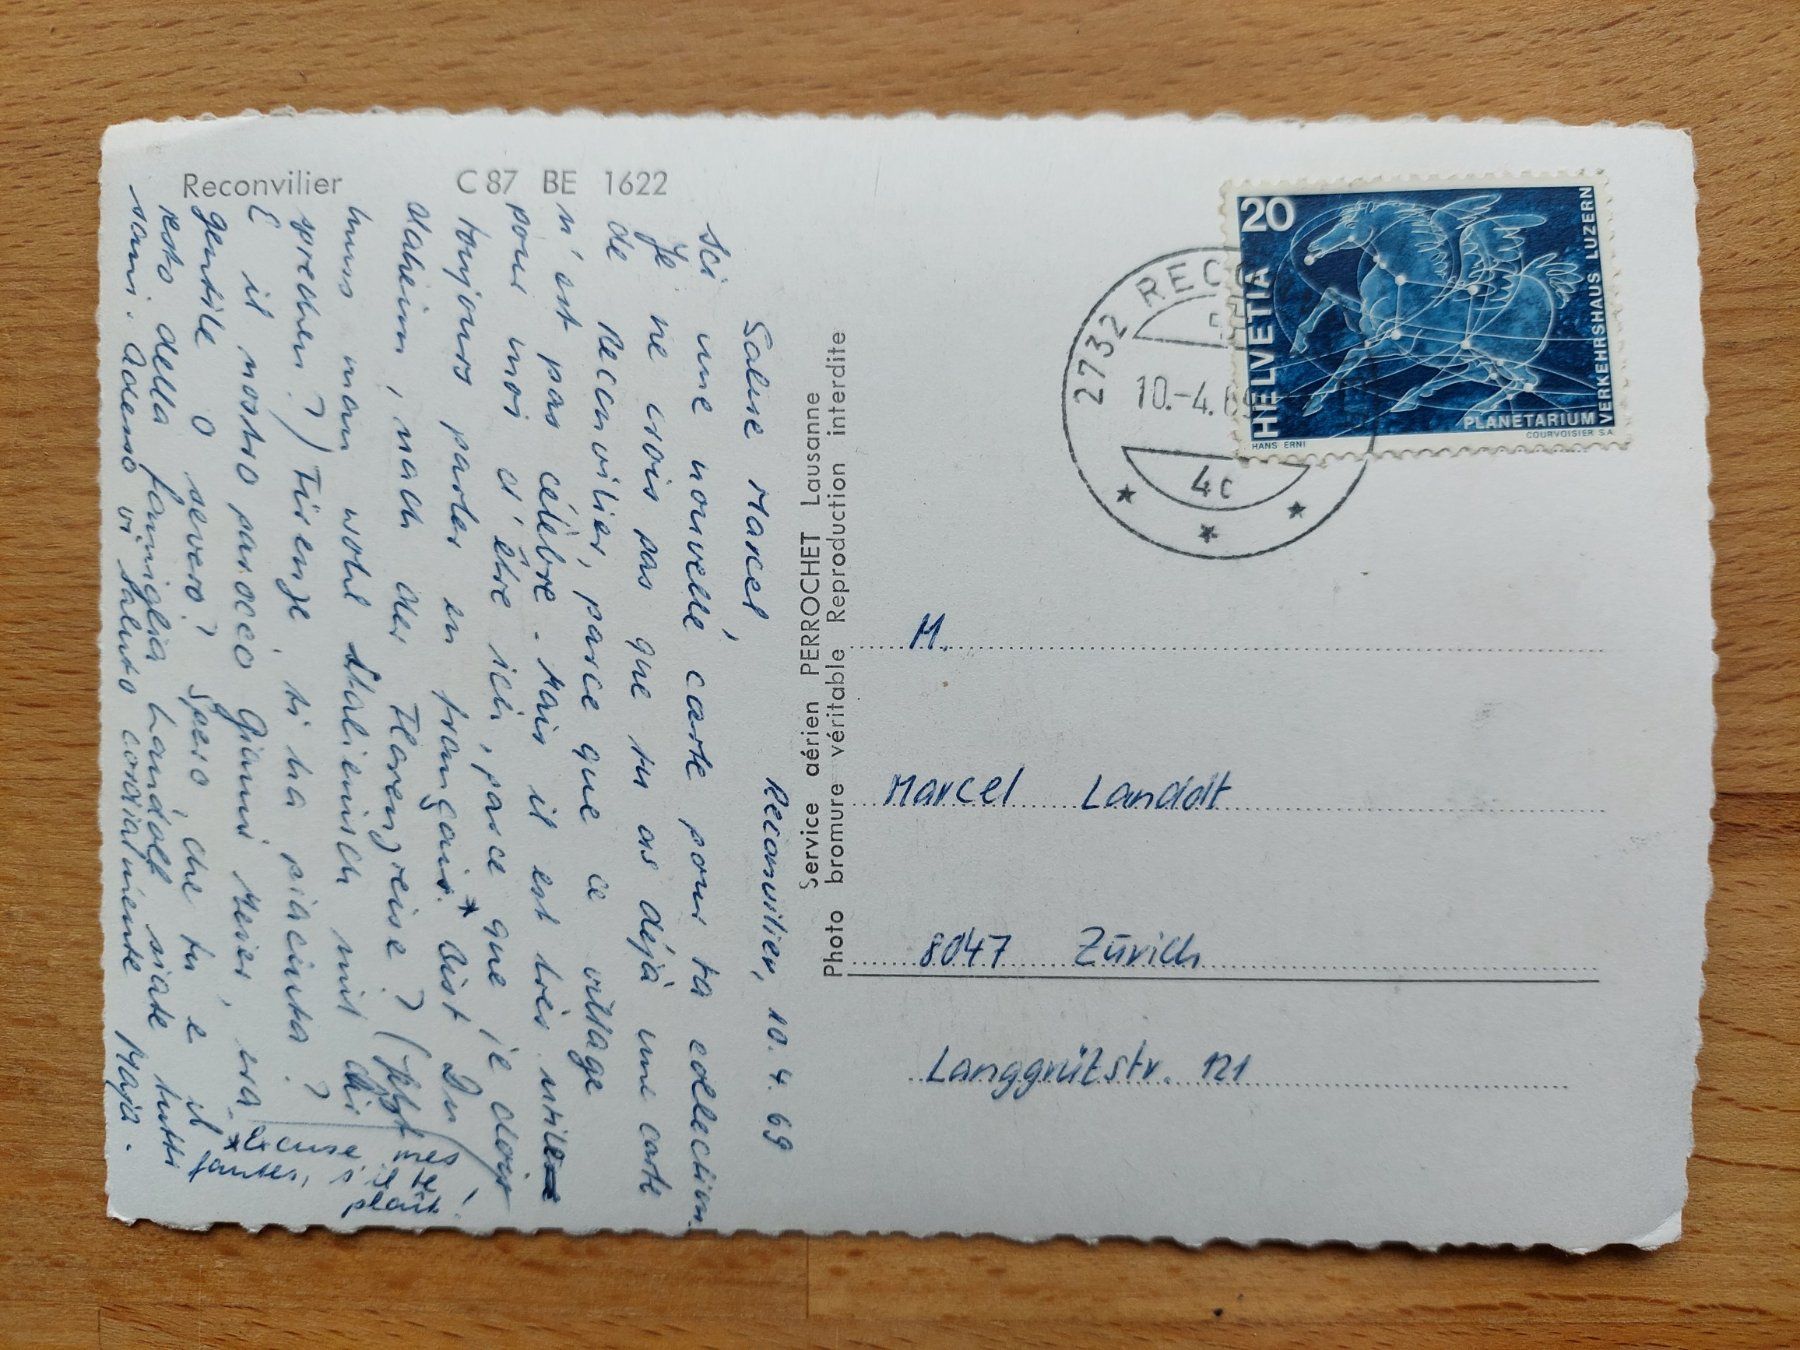 Reconvilier C 87 BE 1622
Reconvilier, 10. 4. 69
Salut Marcel,
Ici une nouvelle carte pour ta collection.
Je ne crois pas que tu as déjà une carte
de Reconvilier, parce que ce village
n'est pas célèbre. Mais il est très utile
pour moi d'être ici, parce que je dois
toujours parler en français.* Bist Du
daheim, nach der Florenzreise? (Jetzt
muss man wohl italienisch mit dir
sprechen?) Firenze, ti ha piaciuta?
E il nostro parocco Gianni Meier, era
gentile o severo? Spero, che tu e il
resto della famiglia Landolt siate tutti
sani. Adesso vi saluto cordialmente Maja.
*Excuse mes
fautes, s'il te
plaît!
Service aérien PERROCHET Lausanne
Photo bromure véritable Reproduction interdite
20
HELVETIA
PLANETARIUM
VERKEHRSHAUS LUZERN
HANS ERNI
COURVOISIER S.A.
2732 RECO
10.-4.69
4c
M.
Marcel Landolt
8047 Zürich
Langgrütstr. 121